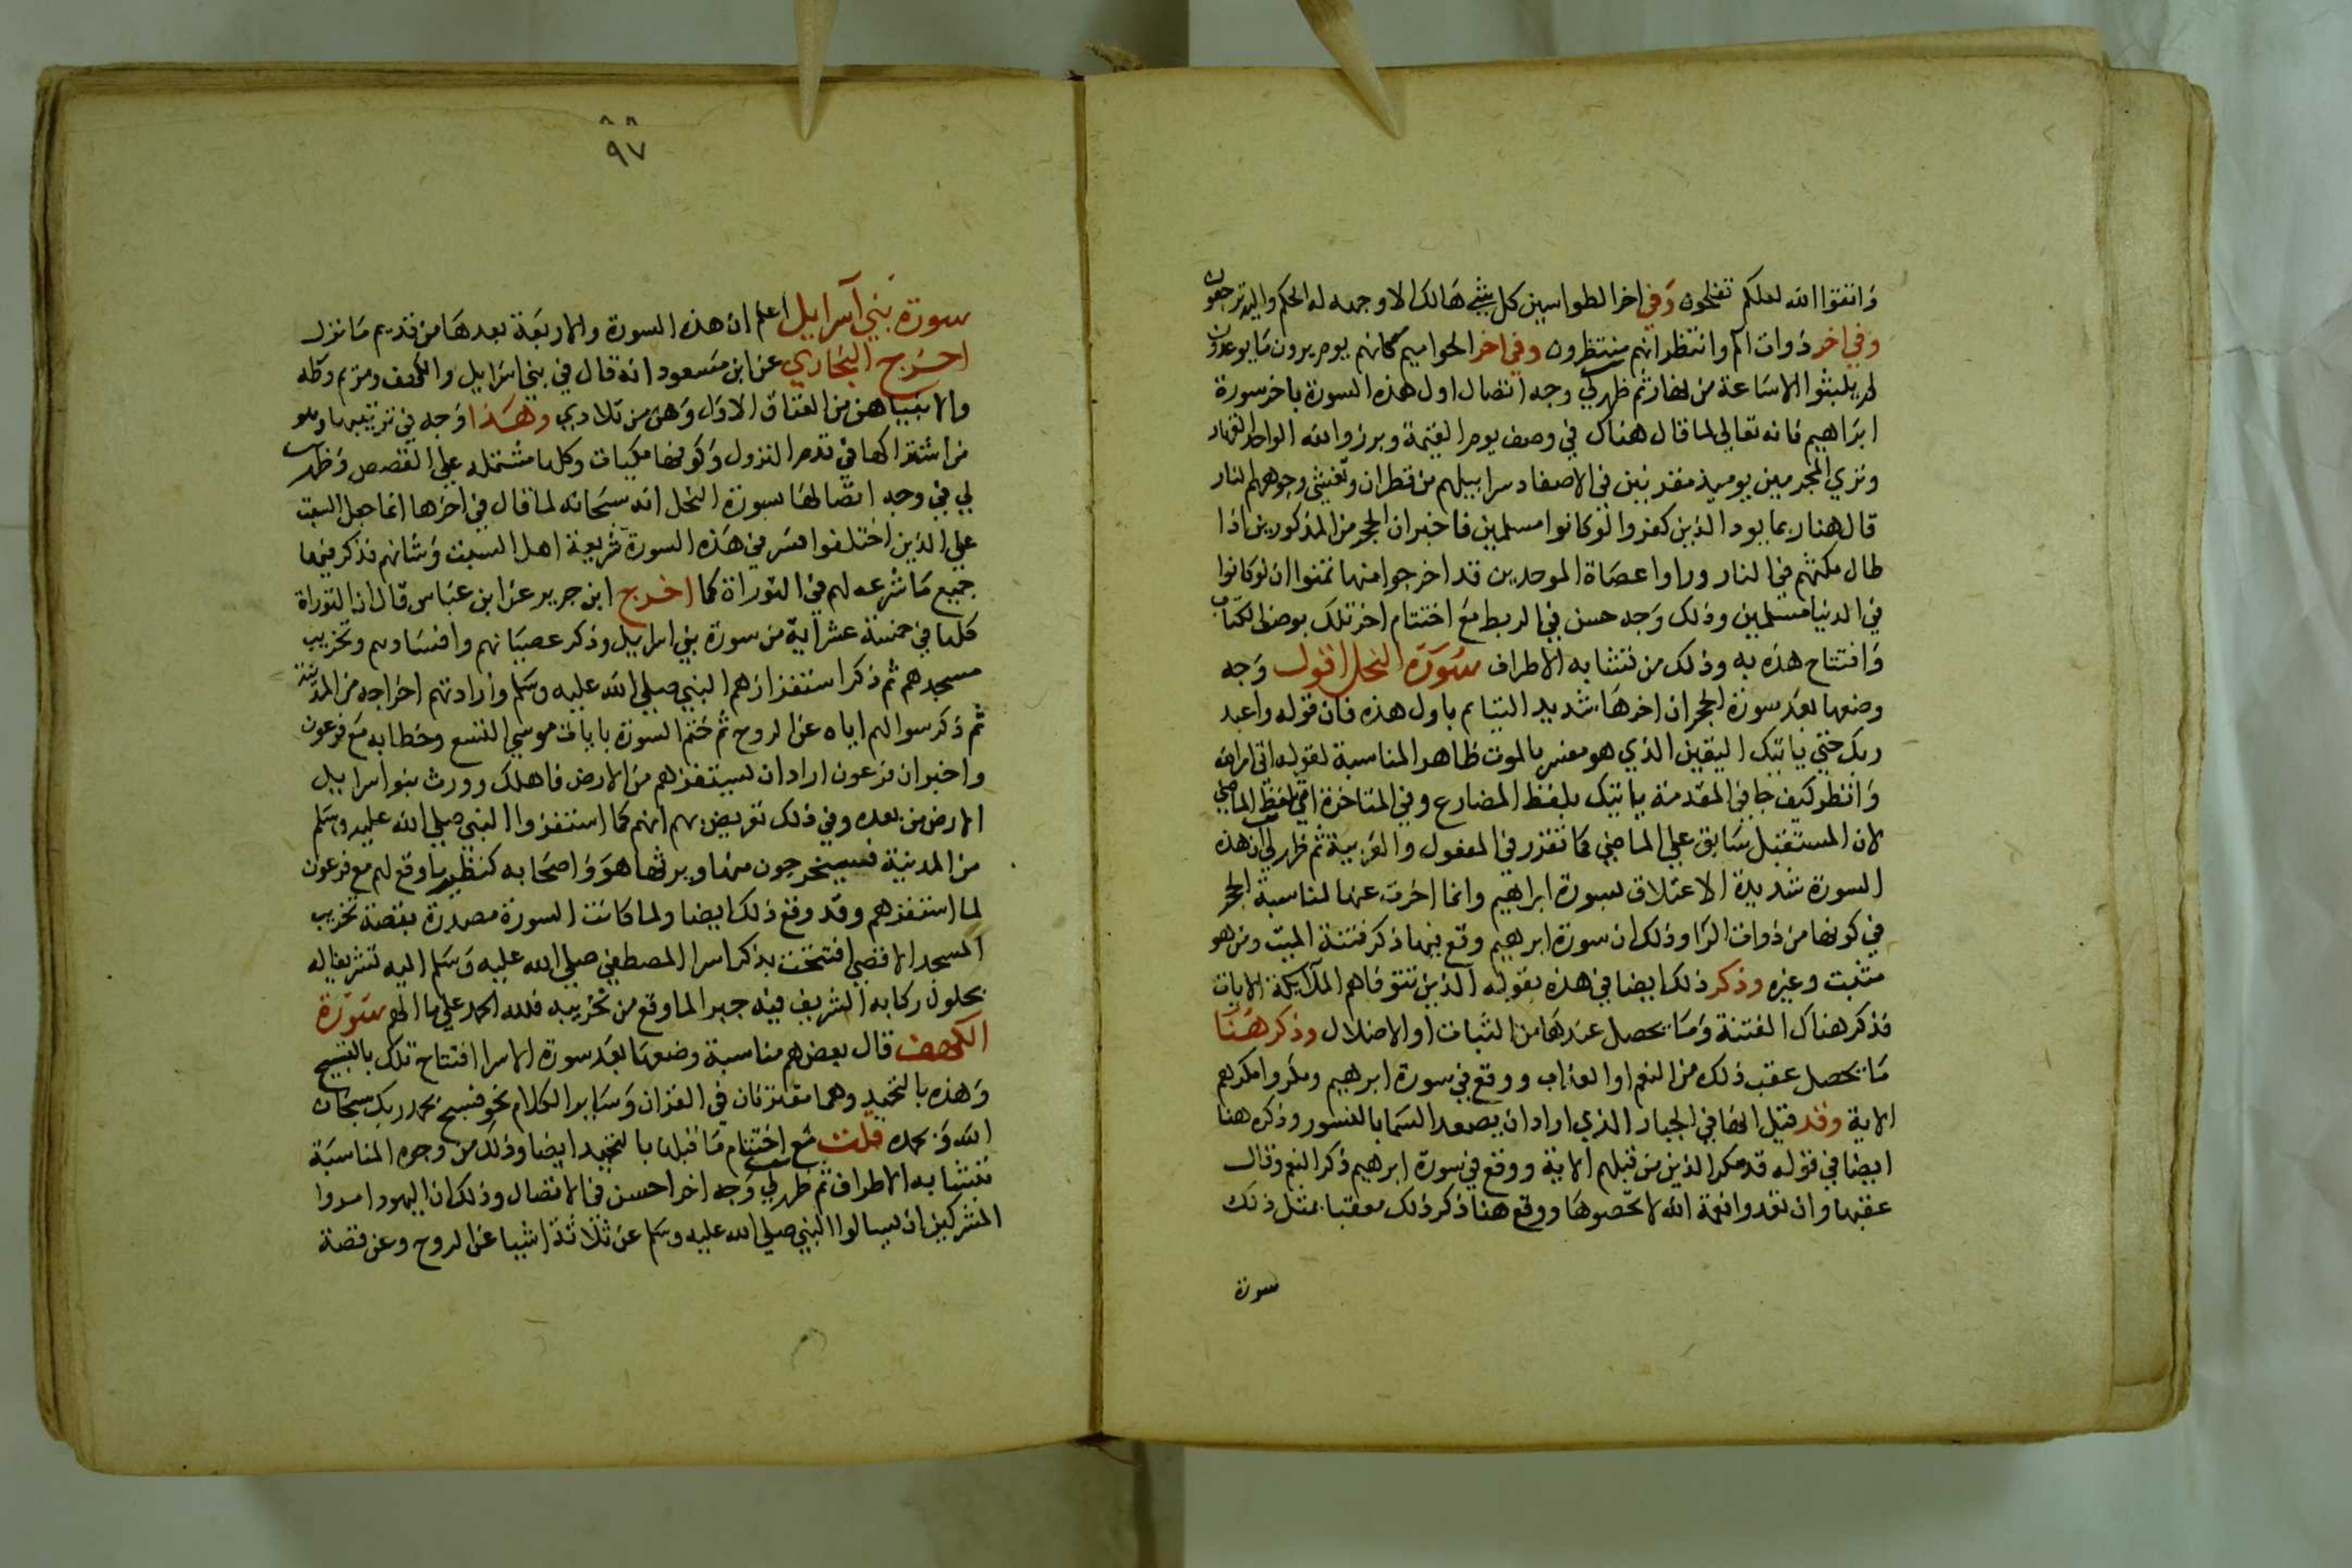 واتقوا الله لعلكم تفلحون وفي اخر الطواسين كل شي هالك الا وجهه له الحكم واليه ترجعون
وفي اخر ذوات الم وانتظر انهم منتظرون وفي اخر الحواميم كانهم يوم يرون ما يوعدون
لم يلبثوا الا ساعة من نهار ثم ظهر لي وجه اتصال اول هذه السورة باخر سورة
ابراهيم فانه تعالي لما قال هناك في وصف يوم القيمة وبرزوا لله الواحد القهار
وتري المجرمين يوميذ مقرنين في الاصفاد سرابيلهم من قطران وتغشي وجوههم النار
قال هنا ربما يود الذين كفروا لو كانوا مسلمين فاخبر ان المجرمين المذكورين اذا
طال مكثهم في النار وراوا عصاة الموحدين قد اخرجوا منها تمنوا ان لو كانوا
في الدنيا مسلمين وذلك وجه حسن في الربط مع اختتام اخر تلك بوصف الكتاب
وافتتاح هذه به وذلك من تشابه الاطراف سورة النحل اقول وجه
وضعها بعد سورة الحجر ان اخرها شديد التيام باول هذه فان قوله واعبد
ربك حتي ياتيك اليقين الذي هو مفسر بالموت ظاهر المناسبة لقوله اتي امر الله
وانظر كيف جا في المقدمة ياتيك بلفظ المضارع وفي المتاخرة اتي بلفظ الماضي
لان المستقبل سابق علي الماضي كما تقرر في المعقول والعربية ثم ظهر لي ان هذه
السورة شديدة الاعتلاق بسورة ابراهيم وانما اخرت عنها لمناسبة الحجر
في كونها من ذوات الرا وذلك ان سورة ابرهيم وقع فيها ذكر فتنة الميت ومن هو
مثبت وغيره وذكر ذلك ايضا في هذه بقوله الذين تتوفاهم الملايكة الايات
فذكر هناك الفتنة وما يحصل عندها من الثبات او الاضلال وذكر هنا
ما يحصل عقب ذلك من النعيم او العذاب ووقع في سورة ابرهيم ومكروا مكرهم
الاية وقد قيل انها في الجبار الذي اراد ان يصعد السما بالنسور وذكره هنا
ايضا في قوله قد مكر الذين من قبلهم الاية ووقع في سورة ابرهيم ذكر النعم وقال
عقبها وان تعدوا نعمة الله لا تحصوها ووقع هنا ذكر ذلك معقبا بمثل ذلك
سورة
٩٧
سورة بني آسرايل اعلم ان هذه السورة والاربعة بعدها من قديم ما نزل
اخرج البخاري عن ابن مسعود انه قال في بني اسرايل والكهف ومريم وطه
والانبيا هن من العتاق الاول وهن من تلادي وهذا وجه في ترتيبها وهو
من اشتراكها في قدم النزول وكونها مكيات وكلها مشتمله علي القصص وظهر
لي في وجه اتصالها بسورة النحل انه سبحانه لما قال في اخرها انما جعل السبت
علي الذين اختلفوا فسر في هذه السورة شريعة اهل السبت وشانهم فذكر فيها
جميع ما شرعه لهم في التوراة كما اخرج ابن جرير عن ابن عباس قال ان التوراة
كلها في خمسة عشر آية من سورة بني اسرايل وذكر عصيانهم وافسادهم وتخريب
مسجدهم ثم ذكر استفزازهم النبي صلي الله عليه وسلم وارادتهم اخراجه من المدينة
ثم ذكر سوالهم اياه عن الروح ثم ختم السورة بايات موسي التسع وخطابه مع فرعون
واخبر ان فرعون اراد ان يستفزهم من الارض فاهلك وورث بنو اسراييل
الارض من بعده وفي ذلك تعريض بهم انهم كما استفزوا النبي صلي الله عليه وسلم
من المدينة فسيخرجون منها ويرثها هو واصحابه كنظير ما وقع لهم مع فرعون
لما استفزهم وقد وقع ذلك ايضا ولما كانت السورة مصدرة بقصة تخريب
المسجد الاقصي افتتحت بذكر اسرا المصطفي صلي الله عليه وسلم اليه تشريفا له
بحلول ركابه الشريف فيه جبرا لما وقع من تخريبه فلله الحمد علي ما الهم سورة
الكهف قال بعضهم مناسبة وضعها بعد سورة الاسرا افتتاح تلك بالتسبيح
وهذه بالتحميد وهما مقترنان في القران وساير الكلام نحو فسبح بحمد ربك سبحان
الله وبحمده قلت مع اختتام ما قبلها بالتحميد ايضا وذلك من وجوه المناسبة
تتشابه الاطراف ثم ظهر لي وجه اخر احسن في الاتصال وذلك ان اليهود امروا
المشركين ان يسالوا النبي صلي الله عليه وسلم عن ثلاثة اشيا عن الروح وعن قصة